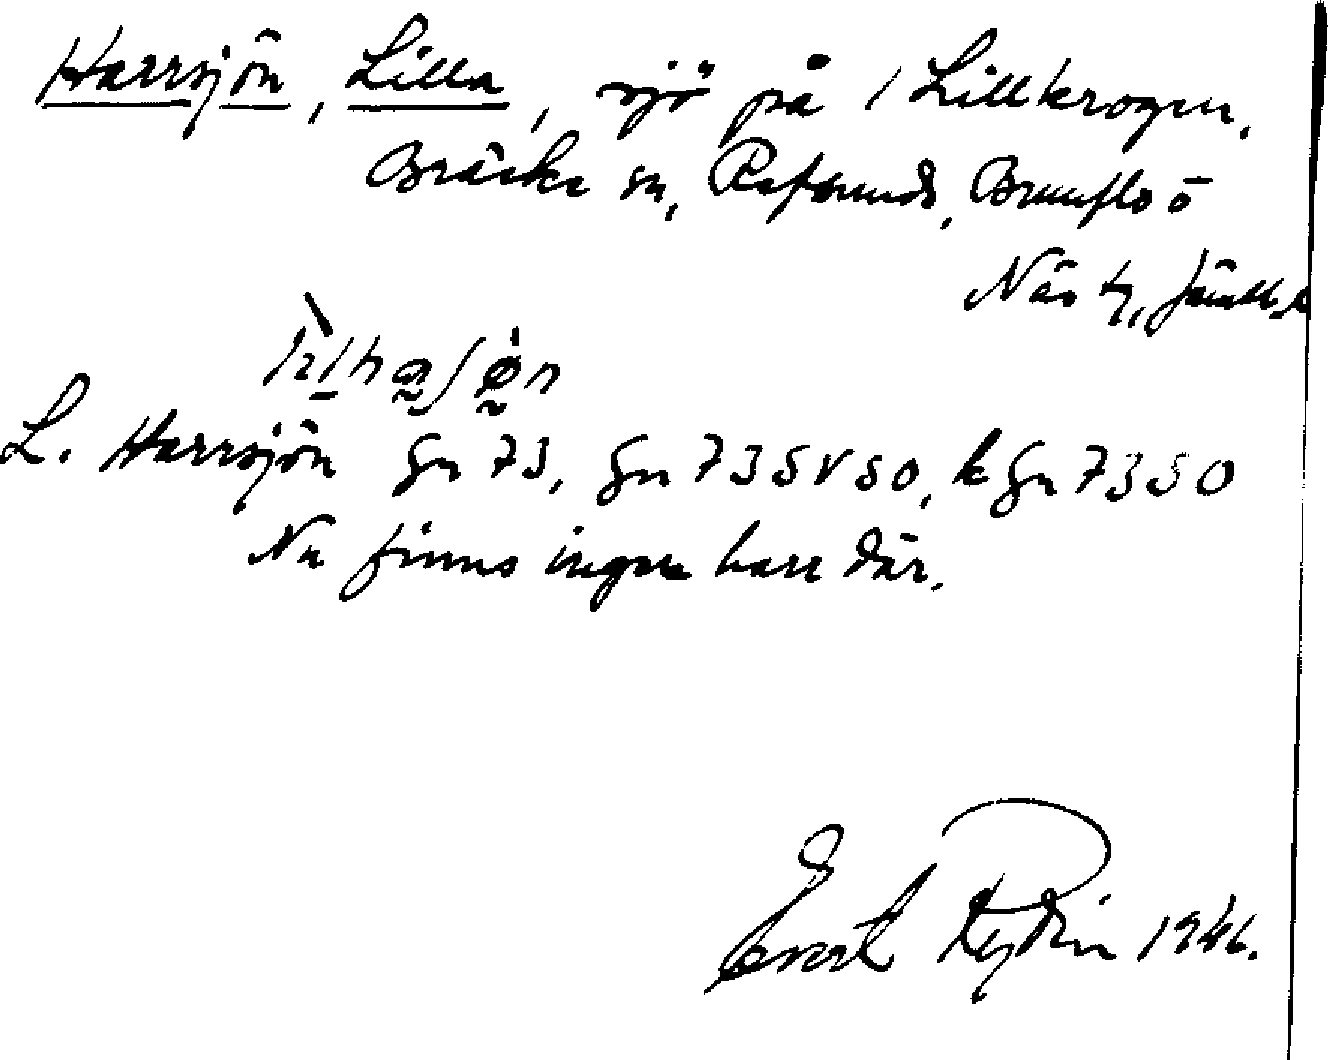 Harrsjön, Lilla, sjö på / Lillkrogen,
Bräcke sn, Refsunds, Brunflo o
Näs tg, Jämtl.
L. Harrsjön Gn 73, Gn 73 SV 50, k Gn 73 50
Nu finns ingen harr där.
Evert Rydin 1946.